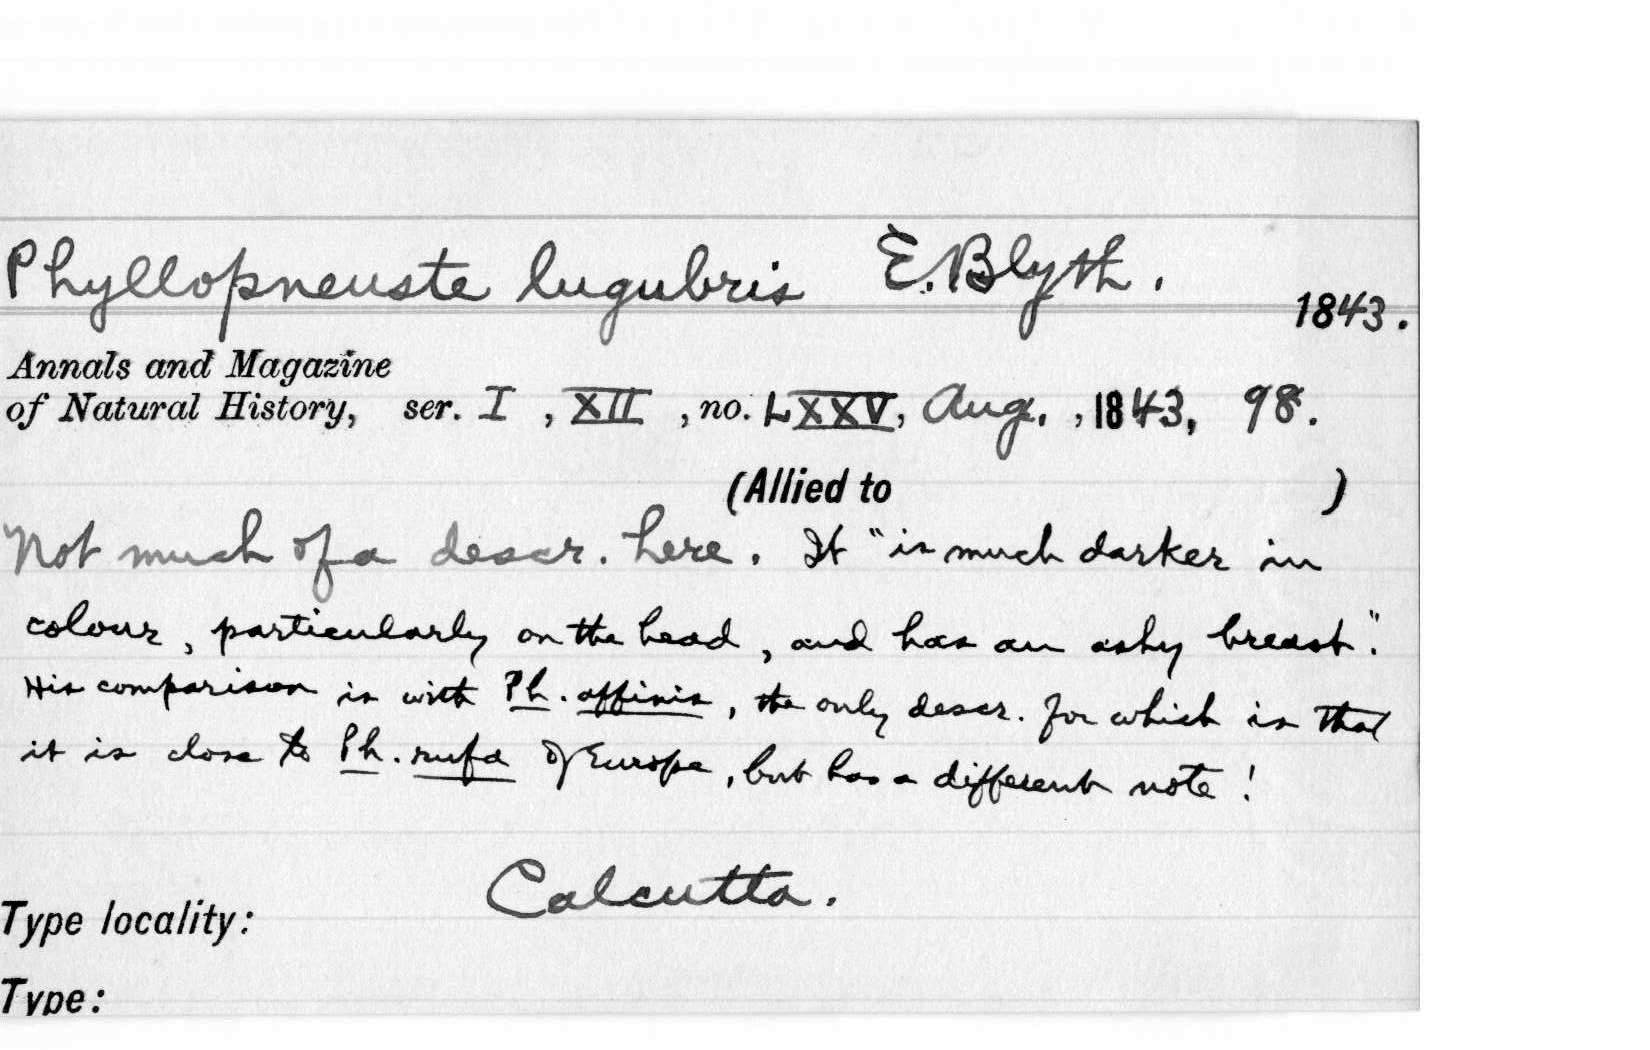 Phyllopneuste lugubris E. Blyth.
1843.
Annals and Magazine
of Natural History, ser. I , XII , no. LXXV, Aug. , 1843, 98.
(Allied to )
Not much of a descr. here. It "is much darker in
colour, particularly on the head, and has an ashy breast".
His comparison is with Ph. affinis, the only descr. for which is that
it is close to Ph. rufa of Europe, but has a different note!
Calcutta.
Type locality:
Type: